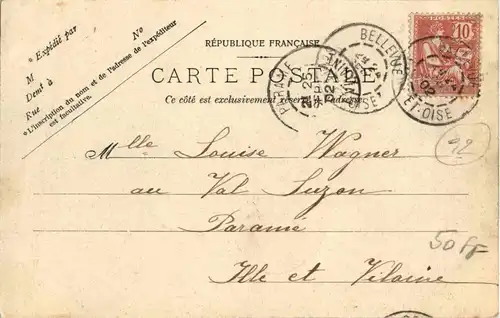 * Expédié par
M
No
Demt à
Rue
* L'inscription du nom et de l'adresse de l'expéditeur
est facultative.
RÉPUBLIQUE FRANÇAISE
CARTE POSTALE
Ce côté est exclusivement réservé à l'adresse
PARAMÉ
BELLEVUE
ET-OISE
02
POSTES
10
Mlle Louise Wagner
au Val Suzon
Parame
Ille et Vilaine
92
50 FF